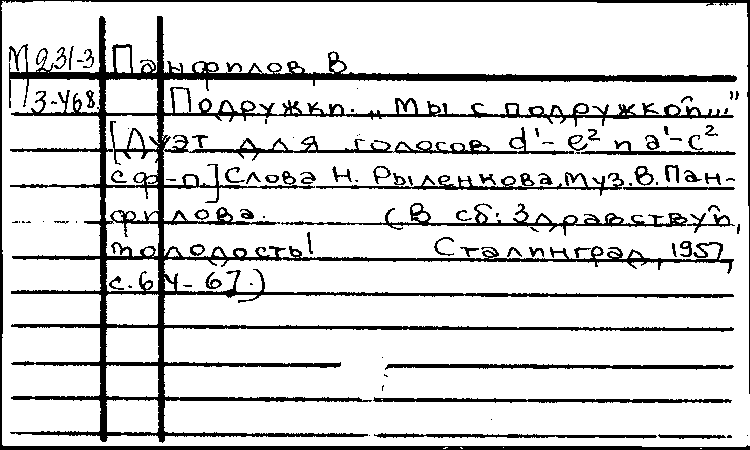 М 231-3 Панфилов, В.
П 3-468 Подружки. „Мы с подружкой..."
[Дуэт для голосов d¹-e² и a¹-c²
с ф-п.] Слова Н. Рыленкова, муз. В. Пан-
филова. (В сб: Здравствуй,
молодость! Сталинград, 1957,
с. 64-67.)